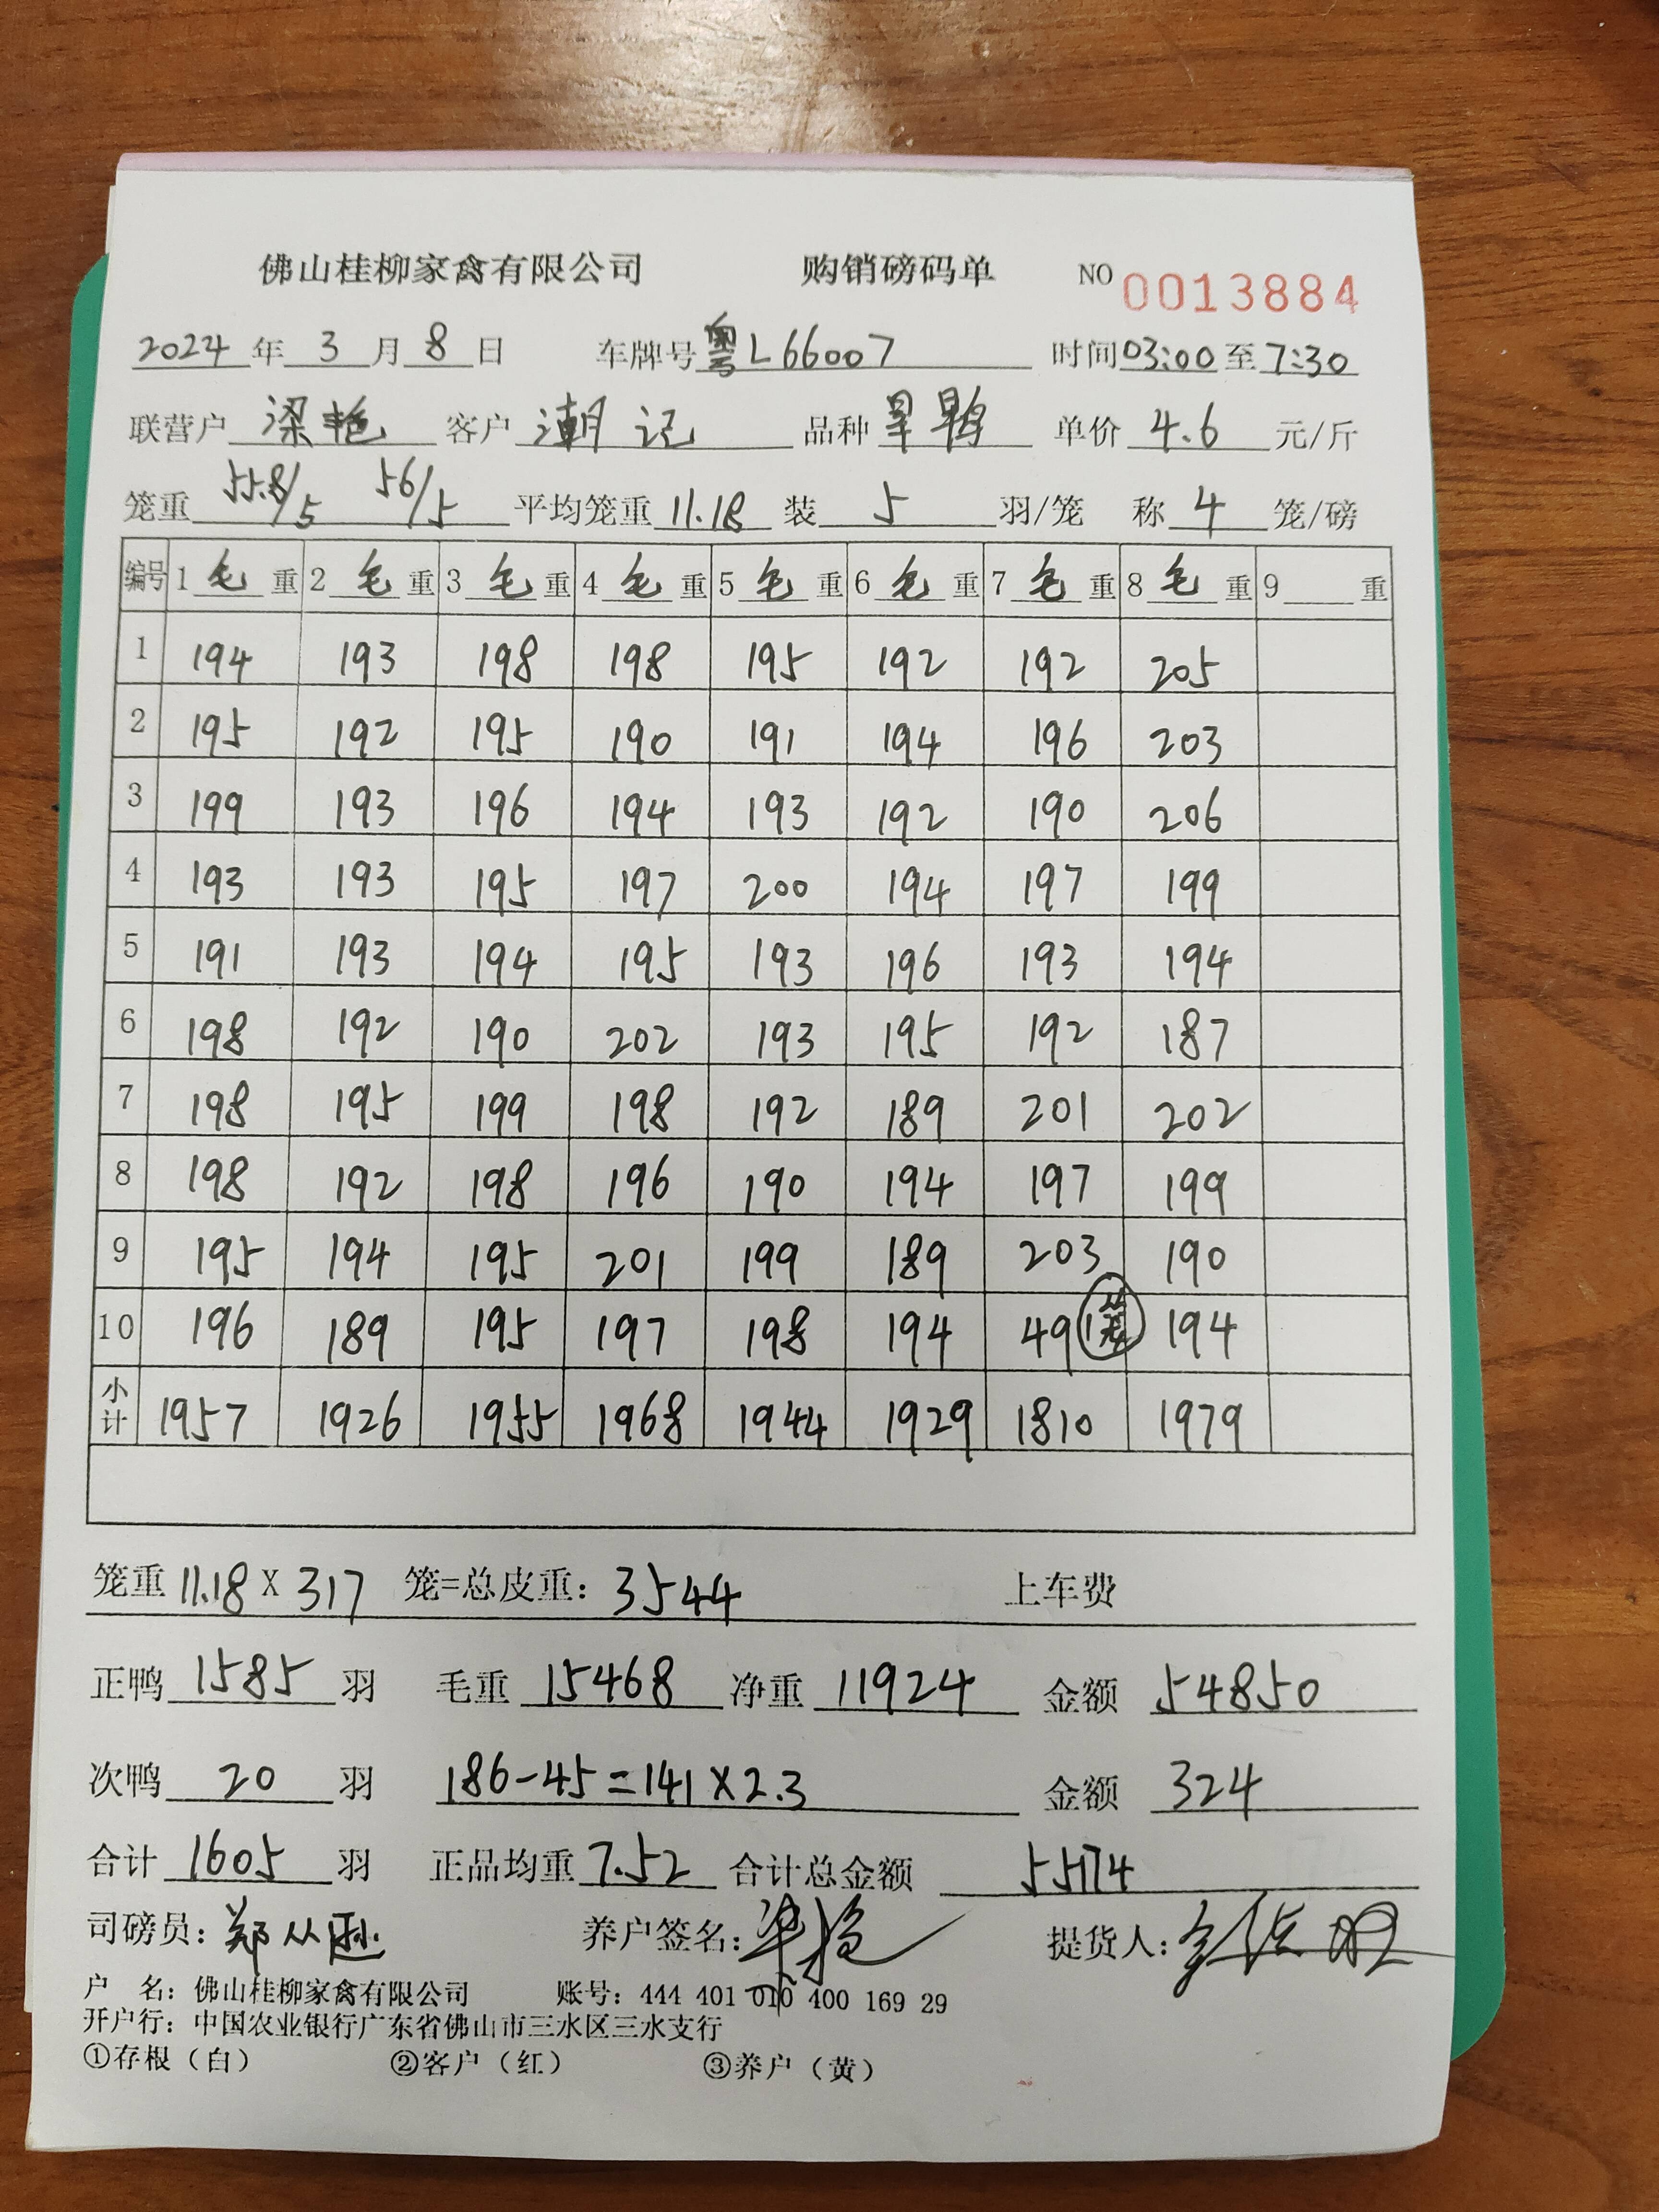 佛山桂柳家禽有限公司 购销磅码单 NO 0013884
2024 年 3 月 8 日 车牌号 粤L66007 时间 03:00 至 7:30
联营户 梁艳 客户 潮记 品种 单价 4.6 元/斤
笼重 55.8/5 56/5 平均笼重 11.18 装 5 羽/笼 称 4 笼/磅
编号 1 毛 重 2 毛 重 3 毛 重 4 毛 重 5 毛 重 6 毛 重 7 毛 重 8 毛 重 9 重
1 194 193 198 198 195 192 192 205
2 195 192 195 190 191 194 196 203
3 199 193 196 194 193 192 190 206
4 193 193 195 197 200 194 197 199
5 191 193 194 195 193 196 193 194
6 198 192 190 202 193 195 192 187
7 198 195 199 198 192 189 201 202
8 198 192 198 196 190 194 197 199
9 195 194 195 201 199 189 203 190
10 196 189 195 197 198 194 49 1笼 194
小计 1957 1926 1955 1968 1944 1929 1810 1979
笼重 11.18 X 317 笼=总皮重: 3544 上车费
正鸭 1585 羽 毛重 15468 净重 11924 金额 54850
次鸭 20 羽 186-45=141×2.3 金额 324
合计 1605 羽 正品均重 7.52 合计总金额 55174
司磅员: 养户签名: 提货人:
户 名: 佛山桂柳家禽有限公司 账号: 444 401 010 400 169 29
开户行: 中国农业银行广东省佛山市三水区三水支行
①存根（白） ②客户（红） ③养户（黄）